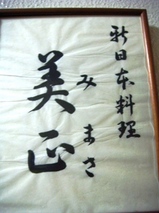 新日本料理
美正
みまさ